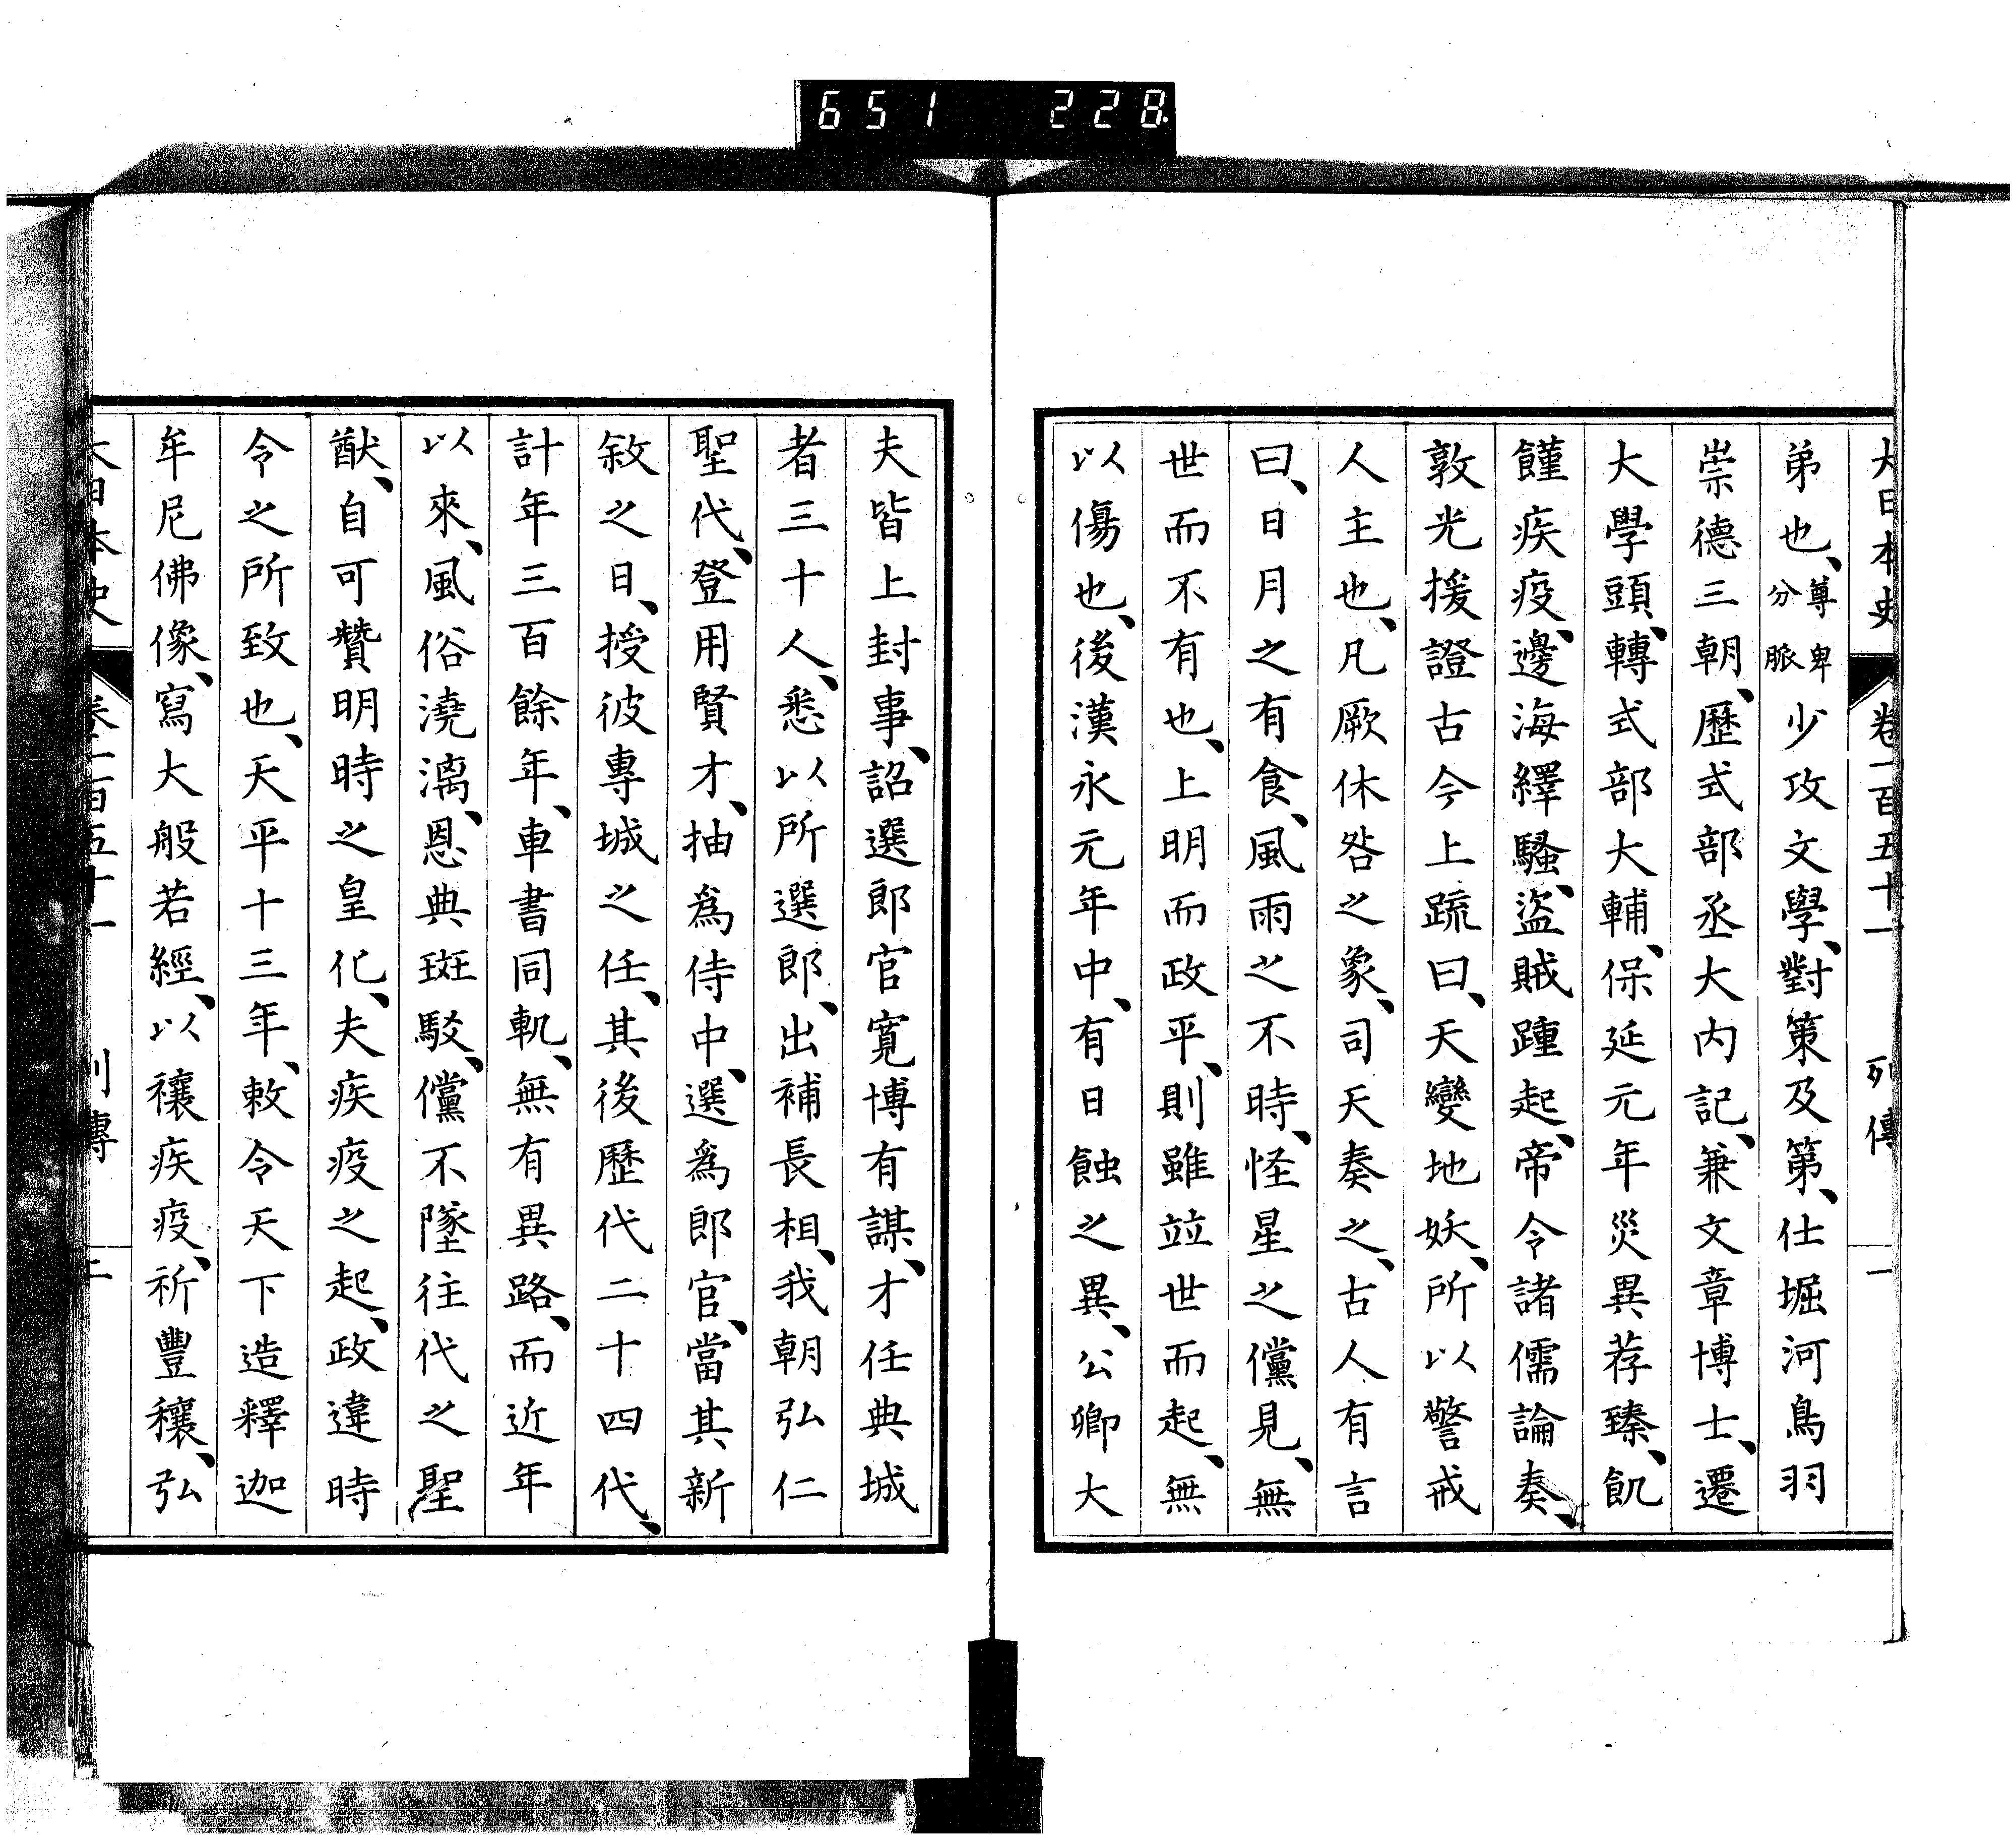 651 228
大日本史 卷一百五十一 列傳 一
弟也、尊卑分脈少攻文學、對策及第、仕堀河鳥羽
崇德三朝、歷式部丞大內記、兼文章博士、遷
大學頭、轉式部大輔、保延元年災異荐臻、飢
饉疾疫、邊海繹騷、盜賊踵起、帝令諸儒論奏、
敦光援證古今上疏曰、天變地妖、所以警戒
人主也、凡厥休咎之象、司天奏之、古人有言
曰、日月之有食、風雨之不時、怪星之儻見、無
世而不有也、上明而政平、則雖竝世而起、無
以傷也、後漢永元年中、有日蝕之異、公卿大
夫皆上封事、詔選郎官寬博有謀、才任典城
者三十人、悉以所選郎、出補長相、我朝弘仁
聖代、登用賢才、抽爲侍中、選爲郎官、當其新
敘之日、授彼專城之任、其後歷代二十四代、
計年三百餘年、車書同軌、無有異路、而近年
以來、風俗澆漓、恩典斑駁、儻不墜往代之聖
猷、自可贊明時之皇化、夫疾疫之起、政違時
令之所致也、天平十三年、敕令天下造釋迦
牟尼佛像、寫大般若經、以禳疾疫、祈豐穰、弘
大日本史 卷一百五十一 列傳 二